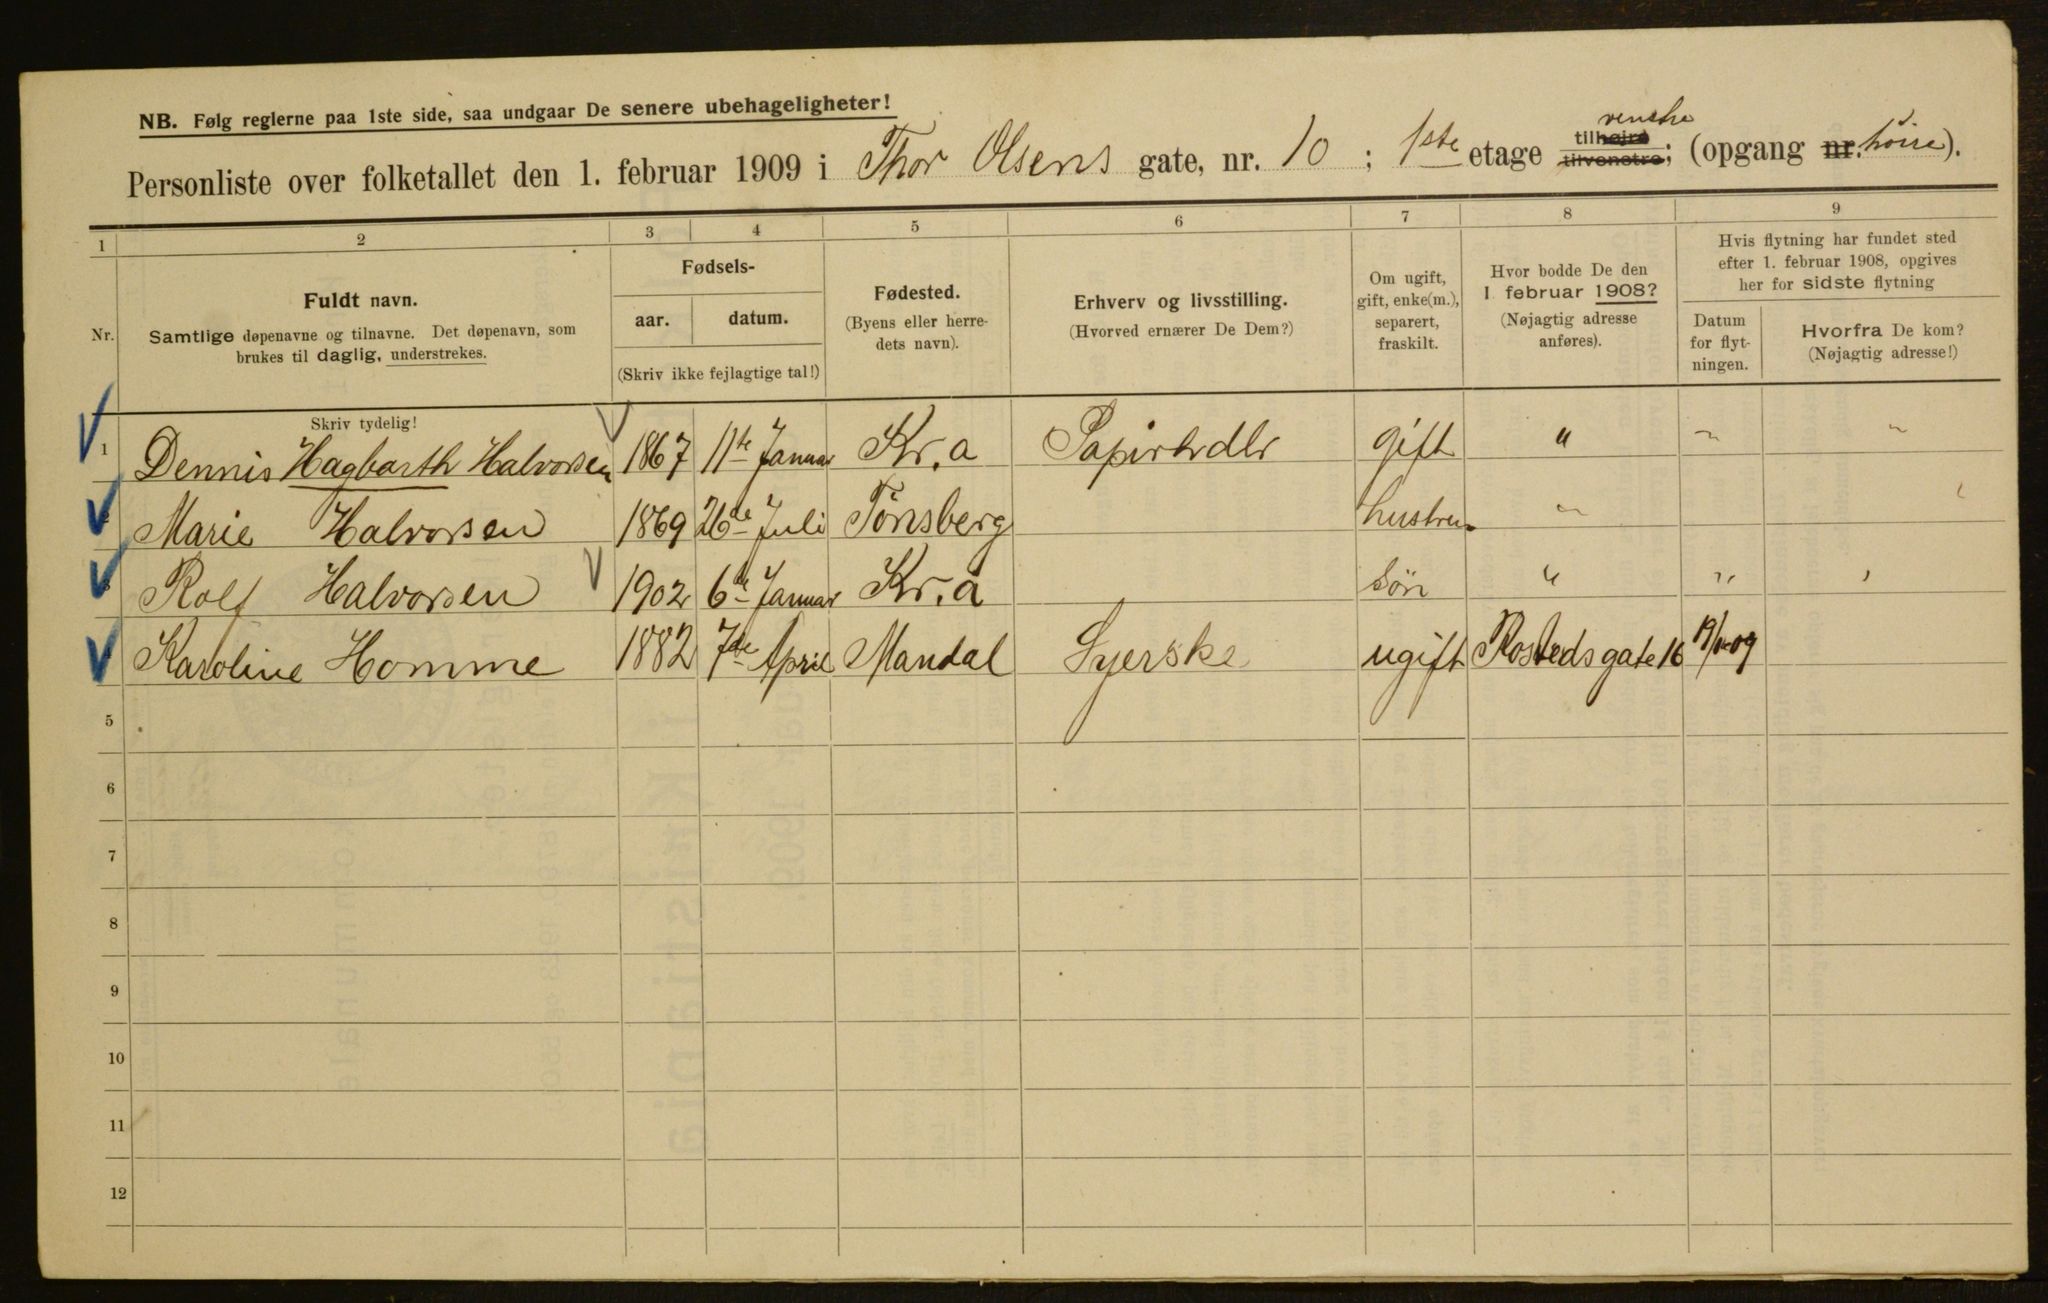 NB. Følg reglerne paa 1ste side, saa undgaar De senere ubehageligheter!
Personliste over folketallet den 1. februar 1909 i Thor Olsens gate, nr. 10 ; 1ste etage tilhøjre tilvenstre venstre; (opgang nr. høire).
1 2 3 4 5 6 7 8 9
Nr.
Fuldt navn.
Samtlige døpenavne og tilnavne. Det døpenavn, som
brukes til daglig, understrekes.
Fødsels-
aar. datum.
(Skriv ikke fejlagtige tal!)
Fødested.
(Byens eller herre-
dets navn).
Erhverv og livsstilling.
(Hvorved ernærer De Dem?)
Om ugift,
gift, enke(m.),
separert,
fraskilt.
Hvor bodde De den
1 februar 1908?
(Nøjagtig adresse
anføres).
Hvis flytning har fundet sted
efter 1. februar 1908, opgives
her for sidste flytning
Datum
for flyt-
ningen.
Hvorfra De kom?
(Nøjagtig adresse!)
Skriv tydelig!
1 Dennis Hagbarth Halvorsen 1867 11te Januar Kr.a Papirhdlr gift " " "
2 Marie Halvorsen 1869 26de Juli Tönsberg hustru "
3 Rolf Halvorsen 1902 6te Januar Kr.a Sön " "
Karoline Homme 1882 7de April Mandal Syerske ugift Rostedsgate 16
5
6
7
8
9
10
11
12